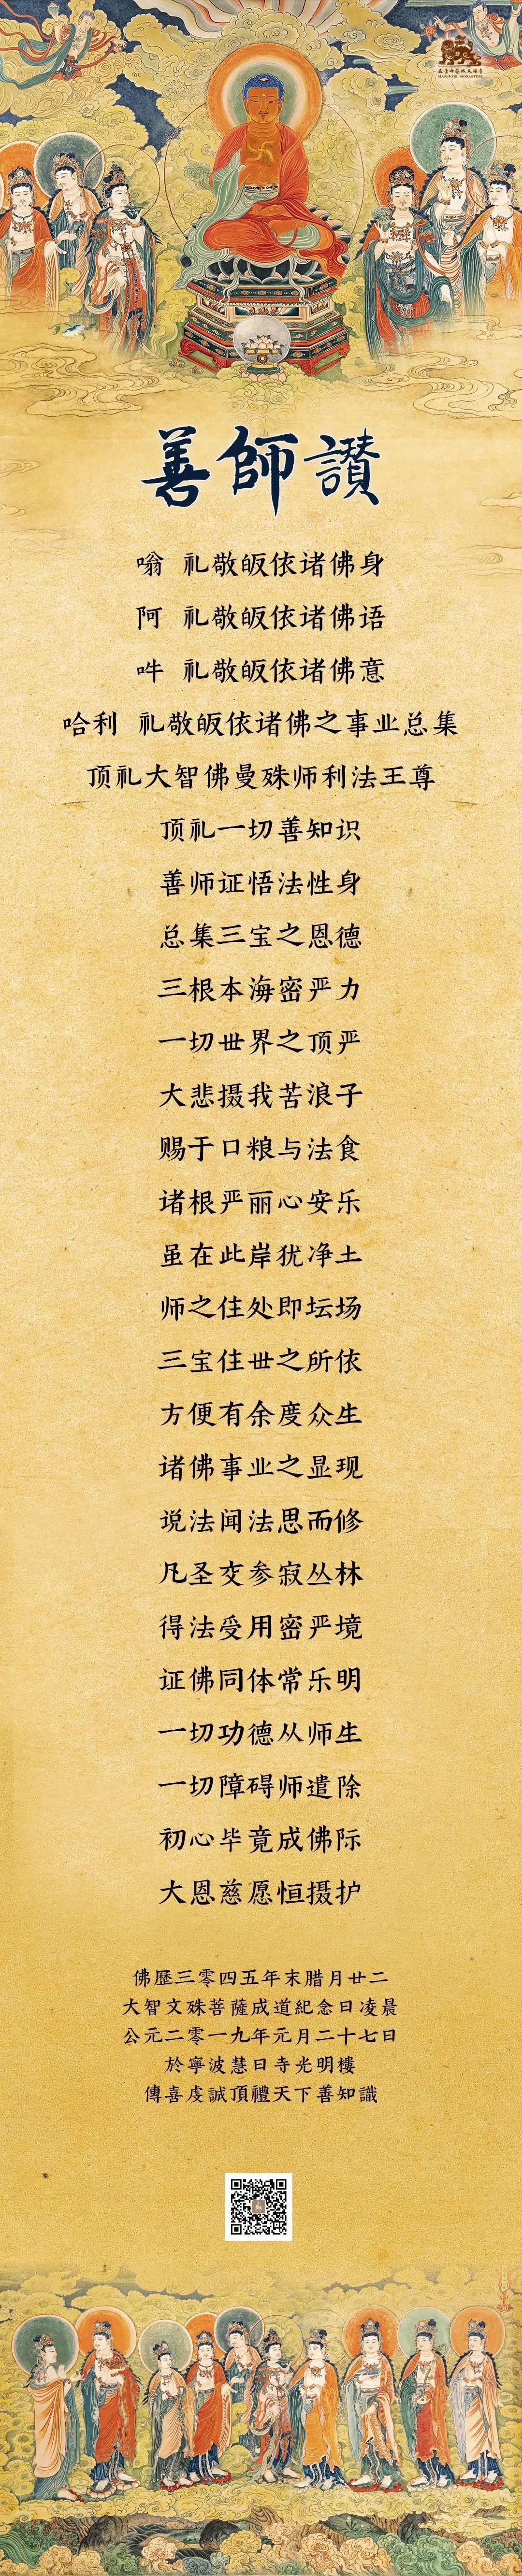 善師讃
嗡 礼敬皈依诸佛身
阿 礼敬皈依诸佛语
吽 礼敬皈依诸佛意
哈利 礼敬皈依诸佛之事业总集
顶礼大智佛曼殊师利法王尊
顶礼一切善知识
善师证悟法性身
总集三宝之恩德
三根本海密严力
一切世界之顶严
大悲摄我苦浪子
赐于口粮与法食
诸根严丽心安乐
虽在此岸犹净土
师之住处即坛场
三宝住世之所依
方便有余度众生
诸佛事业之显现
说法闻法思而修
凡圣交参寂丛林
得法受用密严境
证佛同体常乐明
一切功德从师生
一切障碍师遣除
初心毕竟成佛际
大恩慈愿恒摄护
佛歷三零四五年末腊月廿二
大智文殊菩薩成道紀念日凌晨
公元二零一九年元月二十七日
於寧波慧日寺光明樓
傳喜虔誠頂禮天下善知識